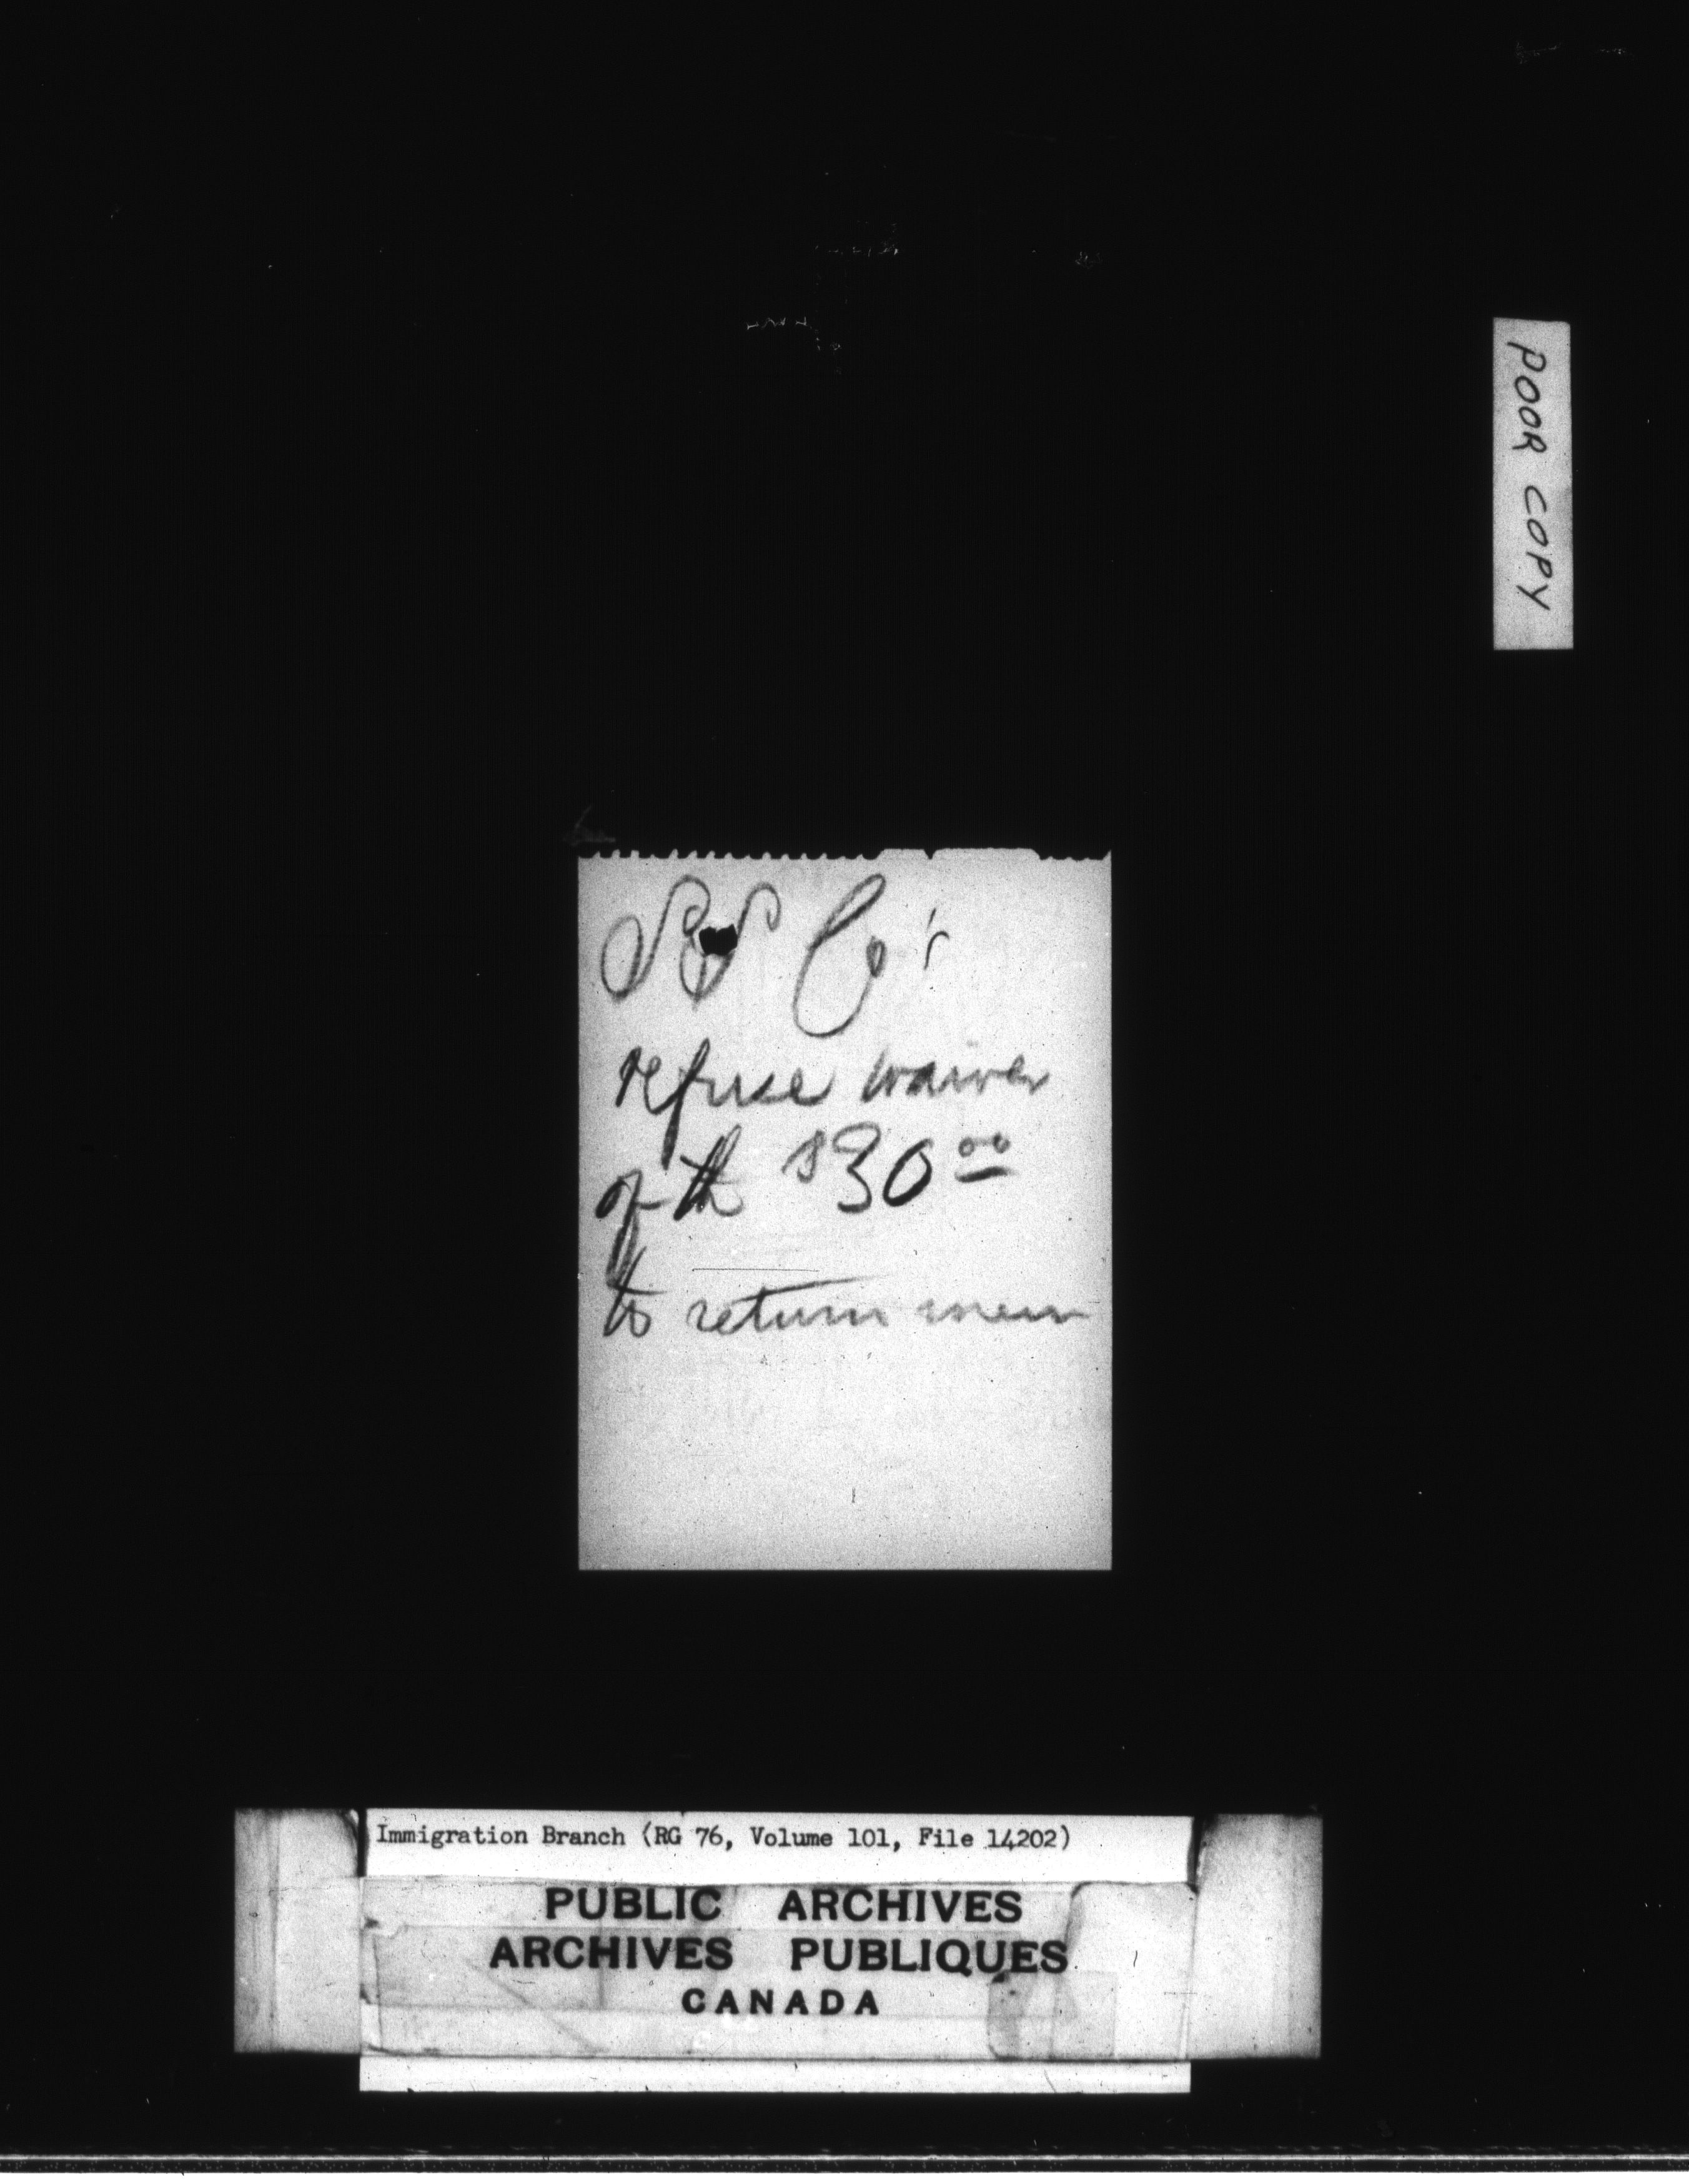 POOR COPY
SS Co's
refuse waiver
of th $30.00
to return men
Immigration Branch (RG 76, Volume 101, File 14202)
PUBLIC ARCHIVES
ARCHIVES PUBLIQUES
CANADA